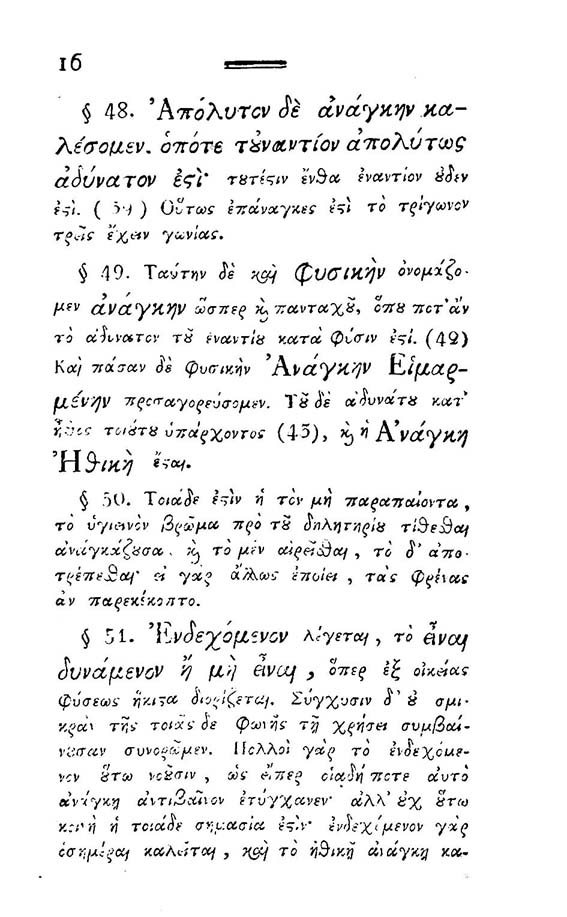 16
§ 48. Ἀπόλυτον δὲ ἀνάγκην κα-
λέσομεν. ὁπότε τοὐναντίον ἀπολύτως
ἀδύνατον ἐστί· τουτέστιν ἔνθα ἐναντίον οὐδὲν
ἐστί. ( 39 ) Οὕτως ἐπάναγκες ἐστὶ τὸ τρίγωνον
τρεῖς ἔχειν γωνίας.
§ 49. Ταύτην δὲ καὶ Φυσικὴν ὀνομάζο-
μεν ἀνάγκην ὥσπερ καὶ πανταχοῦ, ὅπου ποτ᾽ ἂν
τὸ ἀδύνατον τοῦ ἐναντίου κατὰ Φύσιν ἐστί. (42)
Καὶ πᾶσαν δὲ Φυσικὴν Ἀνάγκην Εἱμαρ-
μένην προσαγορεύσομεν. Τοῦ δὲ ἀδυνάτου κατ᾽
ἦθος τοιούτου ὑπάρχοντος (43), καὶ ἡ Ἀνάγκη
Ἠθικὴ ἔσται.
§ 50. Τοιάδε ἐστὶν ἡ τὸν μὴ παραπαίοντα,
τὸ ὑγιεινὸν βρῶμα πρὸ τοῦ δηλητηρίου τίθεσθαι
ἀναγκάζουσα. καὶ τὸ μὲν αἱρεῖσθαι, τὸ δ᾽ ἀπο-
τρέπεσθαι· εἰ γὰρ ἄλλως ἐποίει, τὰς Φρένας
ἂν παρεκέκοπτο.
§ 51. Ἐνδεχόμενον λέγεται, τὸ εἶναι
δυνάμενον ἢ μὴ εἶναι, ὅπερ ἐξ οἰκείας
Φύσεως ἥκιστα διορίζεται. Σύγχυσιν δ᾽ οὐ σμι-
κρὰν τῆς τοιᾶς δε Φωνῆς τῇ χρήσει συμβαί-
νουσαν συνορῶμεν. Πολλοὶ γὰρ τὸ ἐνδεχόμε-
νον οὕτω νοῦσιν, ὡς εἴπερ οἱαδήποτε αὐτὸ
ἀνάγκῃ ἀντιβαῖνον ἐτύγχανεν· ἀλλ᾽ οὐχ οὕτω
κοινὴ ἡ τοιάδε σημασία ἐστίν· ἐνδεχόμενον γὰρ
ὁσημέραι καλεῖται, καὶ τὸ ἠθικῇ ἀνάγκῃ κα-